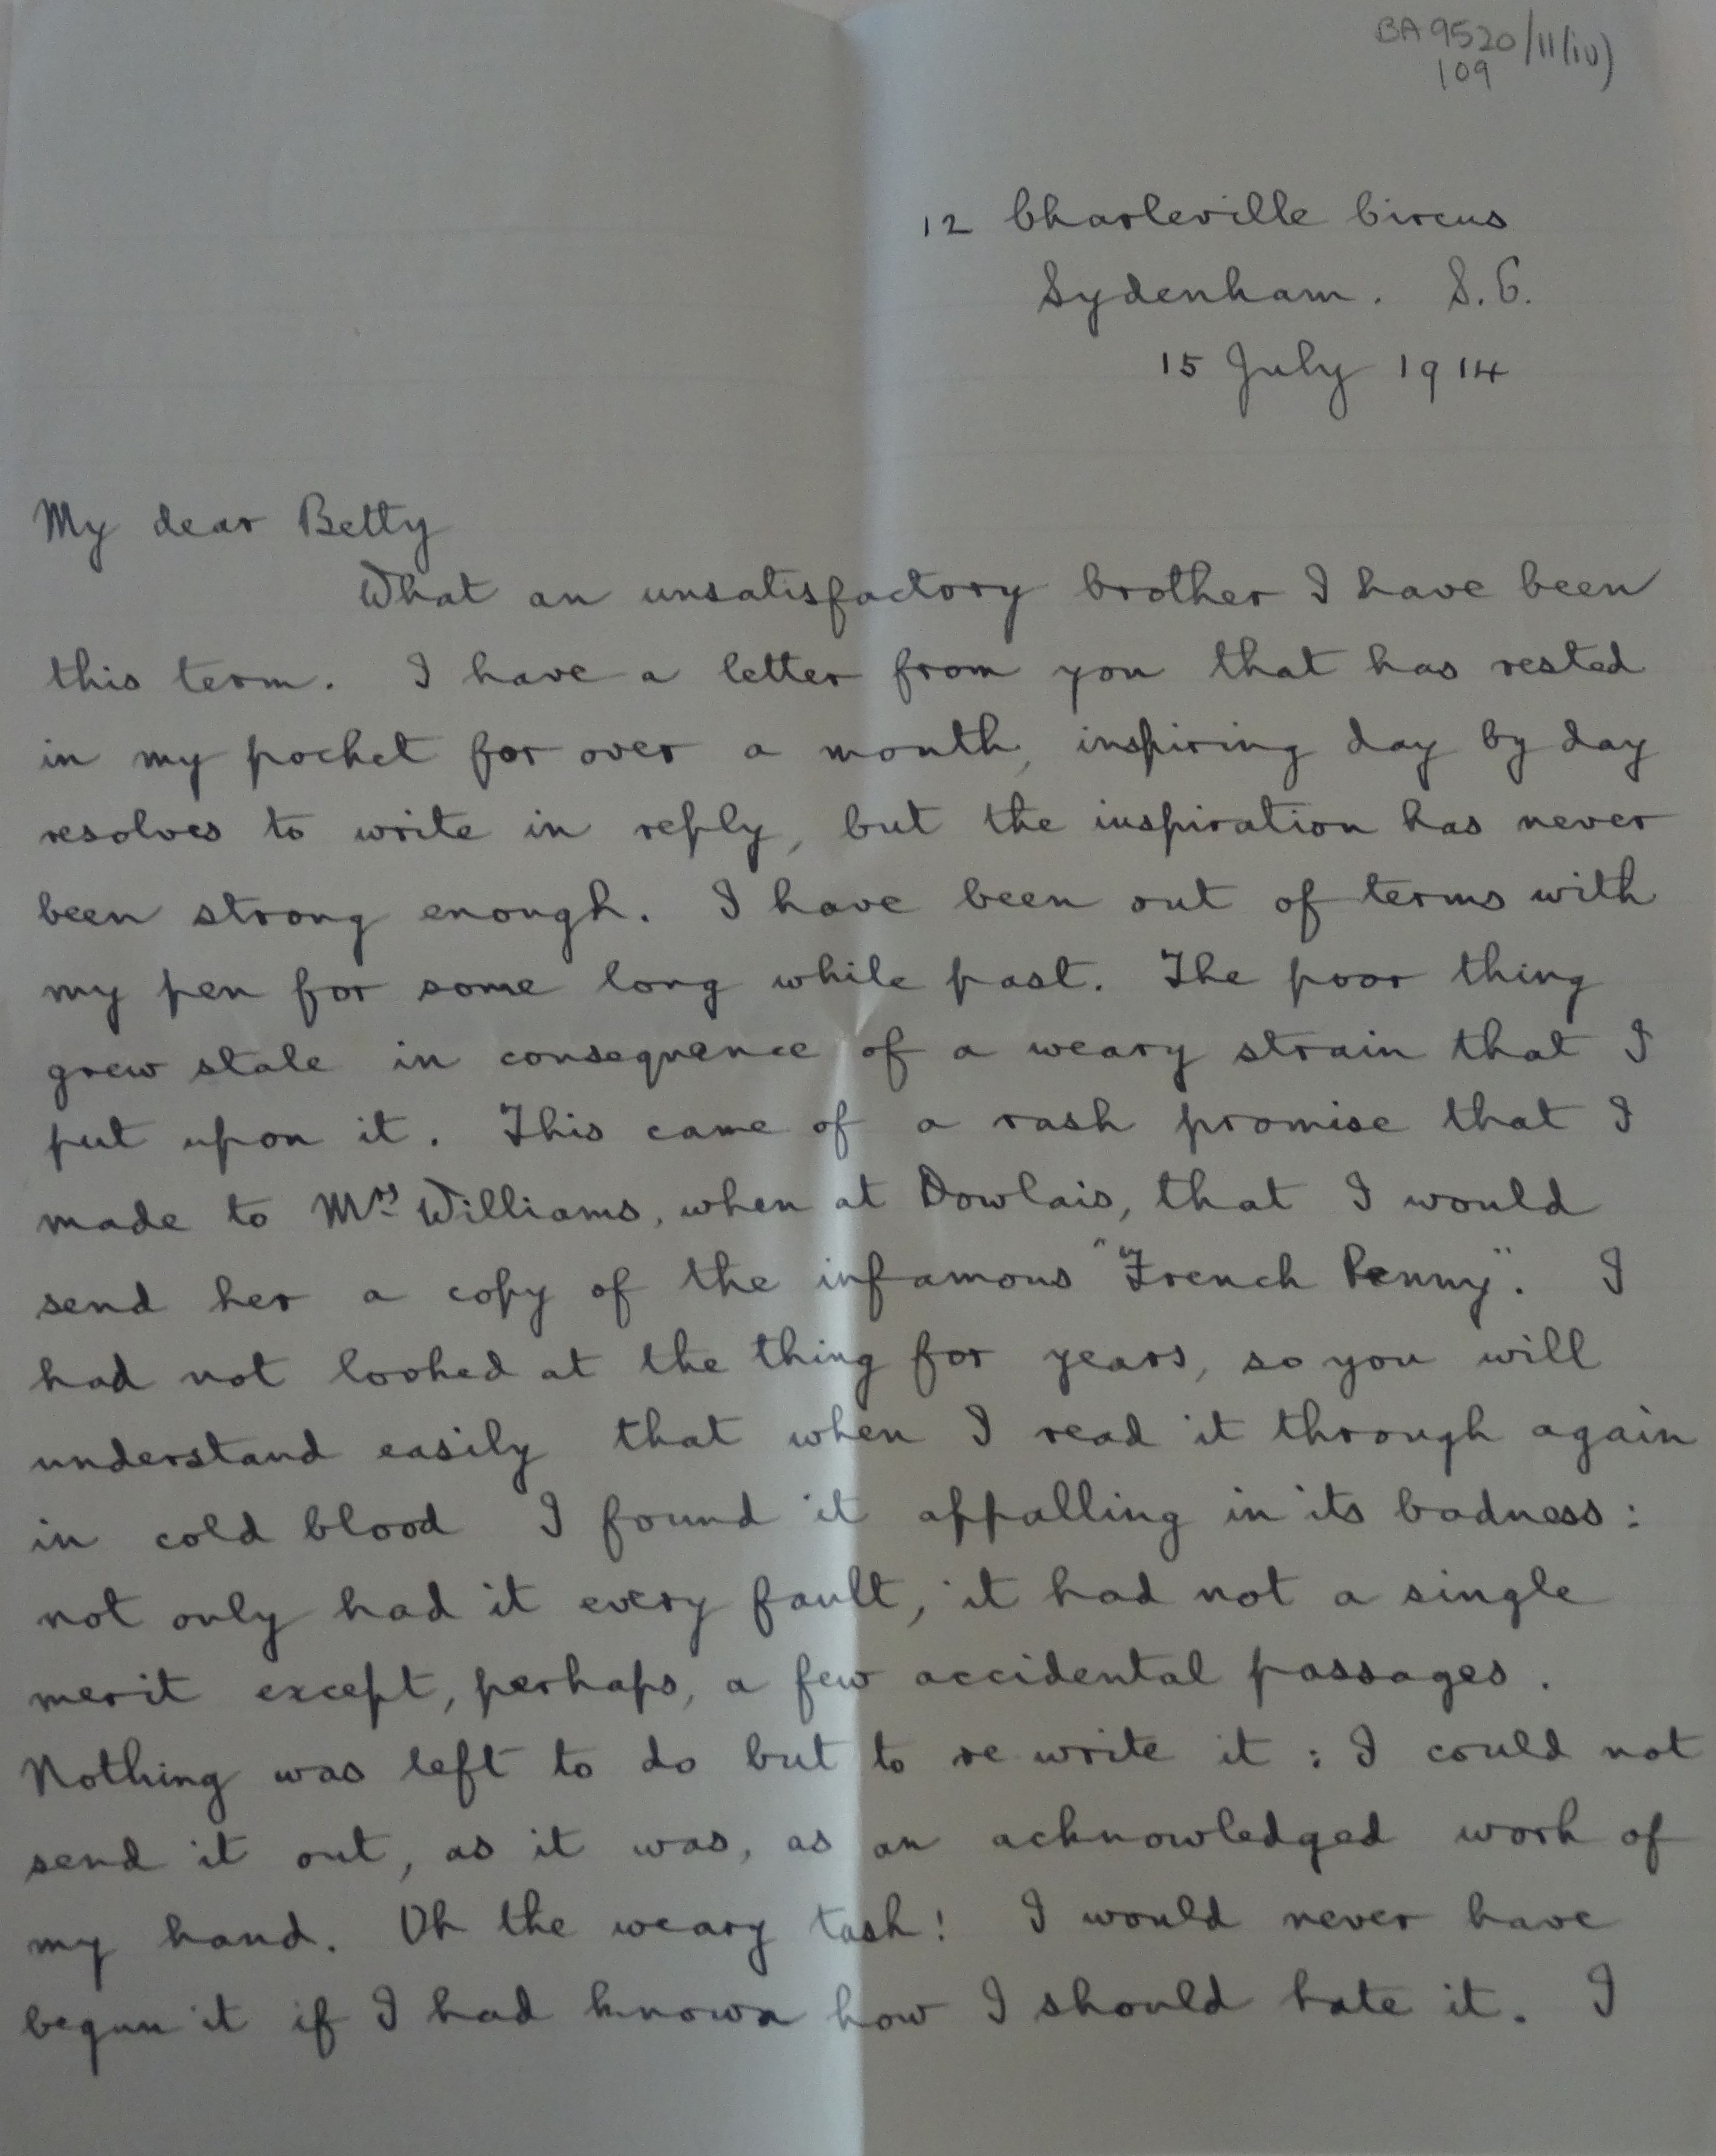 BA 9520/11(iv)
109
12 Charleville Circus
Sydenham. S.E.
15 July 1914
My dear Betty
What an unsatisfactory brother I have been
this term. I have a letter from you that has rested
in my pocket for over a month, inspiring day by day
resolves to write in reply, but the inspiration has never
been strong enough. I have been out of terms with
my pen for some long while past. The poor thing
grew stale in consequence of a weary strain that I
put upon it. This came of a rash promise that I
made to Mrs Williams, when at Dowlais, that I would
send her a copy of the infamous "French Penny". I
had not looked at the thing for years, so you will
understand easily that when I read it through again
in cold blood I found it appalling in its badness:
not only had it every fault, it had not a single
merit except, perhaps, a few accidental passages.
Nothing was left to do but to re write it: I could not
send it out, as it was, as an acknowledged work of
my hand. Oh the weary task! I would never have
begun it if I had known how I should hate it. I